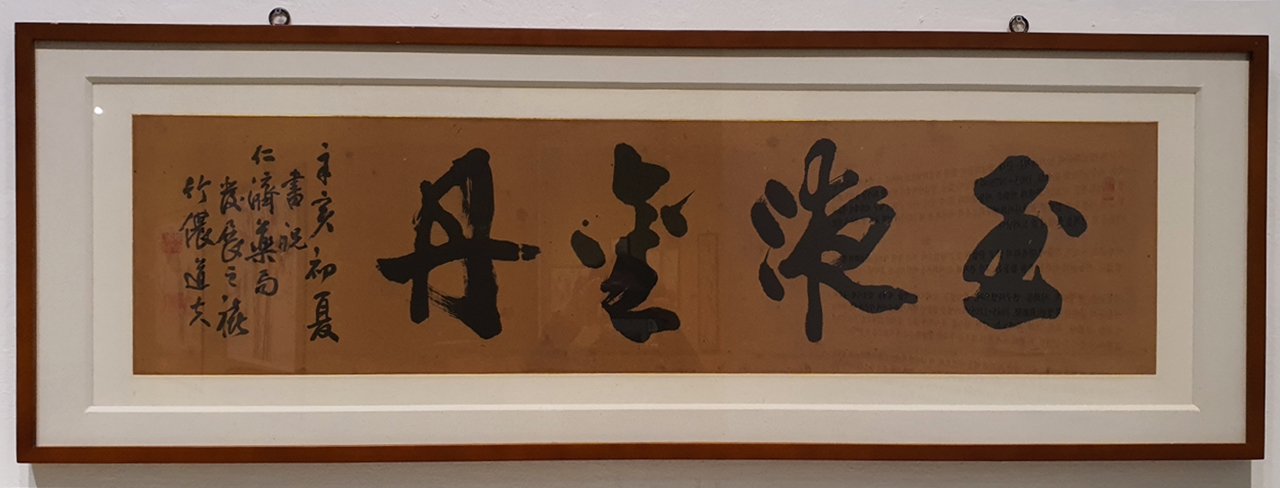 玉液金丹
辛亥初夏
書祝
仁濟藥局
發展之禧
竹儂道夫